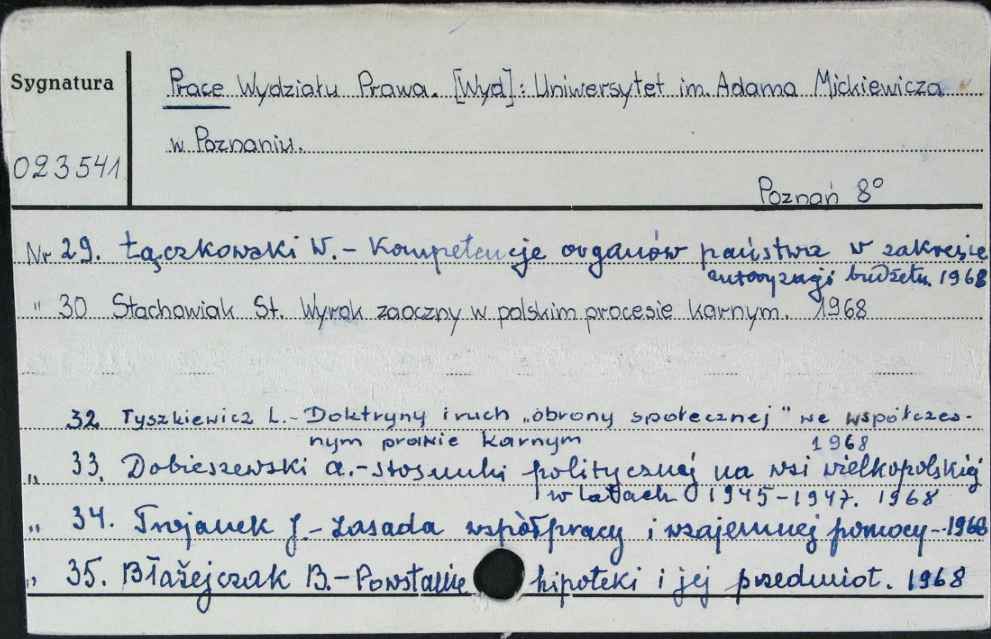 Sygnatura
Prace Wydziału Prawa. [Wyd]: Uniwersytet im. Adama Mickiewicza
w Poznaniu.
023541
Poznań 8°
Nr 29. Łączkowski W. - Kompetencje organów państwa w zakresie
autoryzagi budżetu. 1968
" 30 Stachowiak St. Wyrok zaoczny w polskim procesie karnym. 1968
32 Tyszkiewicz L. - Doktryny i ruch „obrony społecznej" we współczes-
nym prawie karnym 1968
" 33. Dobieszewski A. - Stosunki politycznej na wsi wielkopolskiej
w latach 1945-1947. 1968
" 34. Trojanek J. - Zasada współpracy i wzajemnej pomocy - 1968
" 35. Błażejczak B. - Powstanie hipoteki i jej przedmiot. 1968